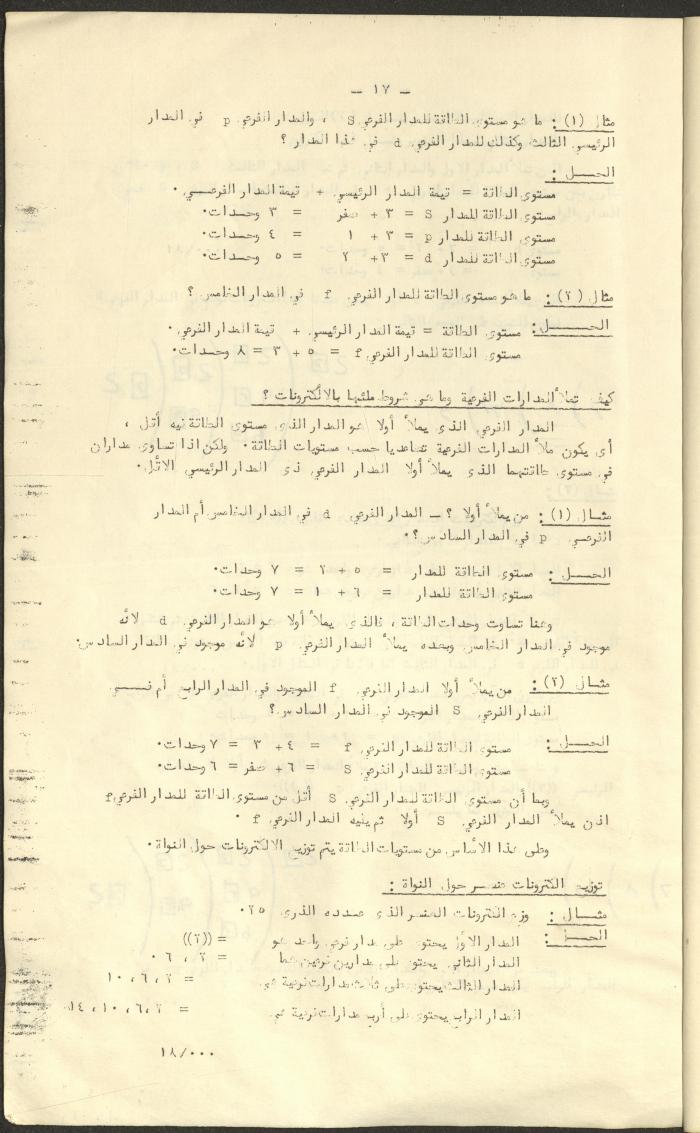 ـ ١٧ ـ
مثال (١) : ما هو مستوى الطاقة للمدار الفرعي S ، والمدار الفرعي p في المدار
الرئيسي الثالث وكذلك للمدار الفرعي d في هذا المدار ؟
الحـــل :
مستوى الطاقة = قيمة المدار الرئيسي + قيمة المدار الفرعـــي ٠
مستوى الطاقة للمدار S = ٣ + صفر = ٣ وحدات٠
مستوى الطاقة للمدار p = ٣ + ١ = ٤ وحدات٠
مستوى الطاقة للمدار d = ٣+ ٢ = ٥ وحدات٠
مثال (٢) : ما هو مستوى الطاقة للمدار الفرعي f في المدار الخامس ؟
الحـــل : مستوى الطاقة = قيمة المدار الرئيسي + قيمة المدار الفرعي ٠
مستوى الطاقة للمدار الفرعي f = ٥ + ٣ = ٨ وحدات٠
كيف تملأ المدارات الفرعية وما هي شروط ملئها بالألكترونات ؟
المدار الفرعي الذي يملأ أولا هو المدار الذي مستوى الطاقة فيه أقل ،
أي يكون ملأ المدارات الفرعية تصاعديا حسب مستويات الطاقة٠ ولكن اذا تساوى مداران
في مستوى طاقتهما الذي يملأ أولا المدار الفرعي ذي المدار الرئيسي الأقل٠
مثــال (١) : من يملأ أولا ؟ ـ المدار الفرعي d في المدار الخامس أم المدار
الفرعــي p في المدار السادس ؟٠
الحـــل : مستوى الطاقة للمدار = ٥ + ٢ = ٧ وحدات٠
مستوى الطاقة للمدار = ٦ + ١ = ٧ وحدات٠
وهنا تساوت وحدات الطاقة ، فالذي يملأ أولا هو المدار الفرعي d لأنه
موجود في المدار الخامس وبعده يملأ المدار الفرعي p لأنه موجود في المدار السادس٠
مثــال (٢) : من يملأ أولا المدار الفرعي f الموجود في المدار الرابع أم فـــي
المدار الفرعي S الموجود في المدار السادس ؟
الحـــل : مستوى الطاقة للمدار الفرعي f = ٤ + ٣ = ٧ وحدات٠
مستوى الطاقة للمدار الفرعي S = ٦ + صفر = ٦ وحدات٠
وبما أن مستوى الطاقة للمدار الفرعي S أقل من مستوى الطاقة للمدار الفرعي f
اذن يملأ المدار الفرعي S أولا ثم يليه المدار الفرعي f ٠
وعلى هذا الأساس من مستويات الطاقة يتم توزيع الالكترونات حول النواة٠
توزيع الكترونات عنصر حول النواة :
مثــال : وزع الكترونات العنصر الذي عــدده الذري ٢٥٠
الحـــل : المدار الأول يحتوي على مدار فرعي واحد هو = ((٢))
المدار الثاني يحتوي على مدارين فرعين هما = ٢ ، ٦ ٠
المدار الثالث يحتوي على ثلاث مدارات فرعية هي = ٢ ، ٦ ، ١٠
المدار الرابع يحتوي على أربع مدارات فرعية هي = ٢ ، ٦ ، ١٠ ، ١٤
١٨/٠٠٠